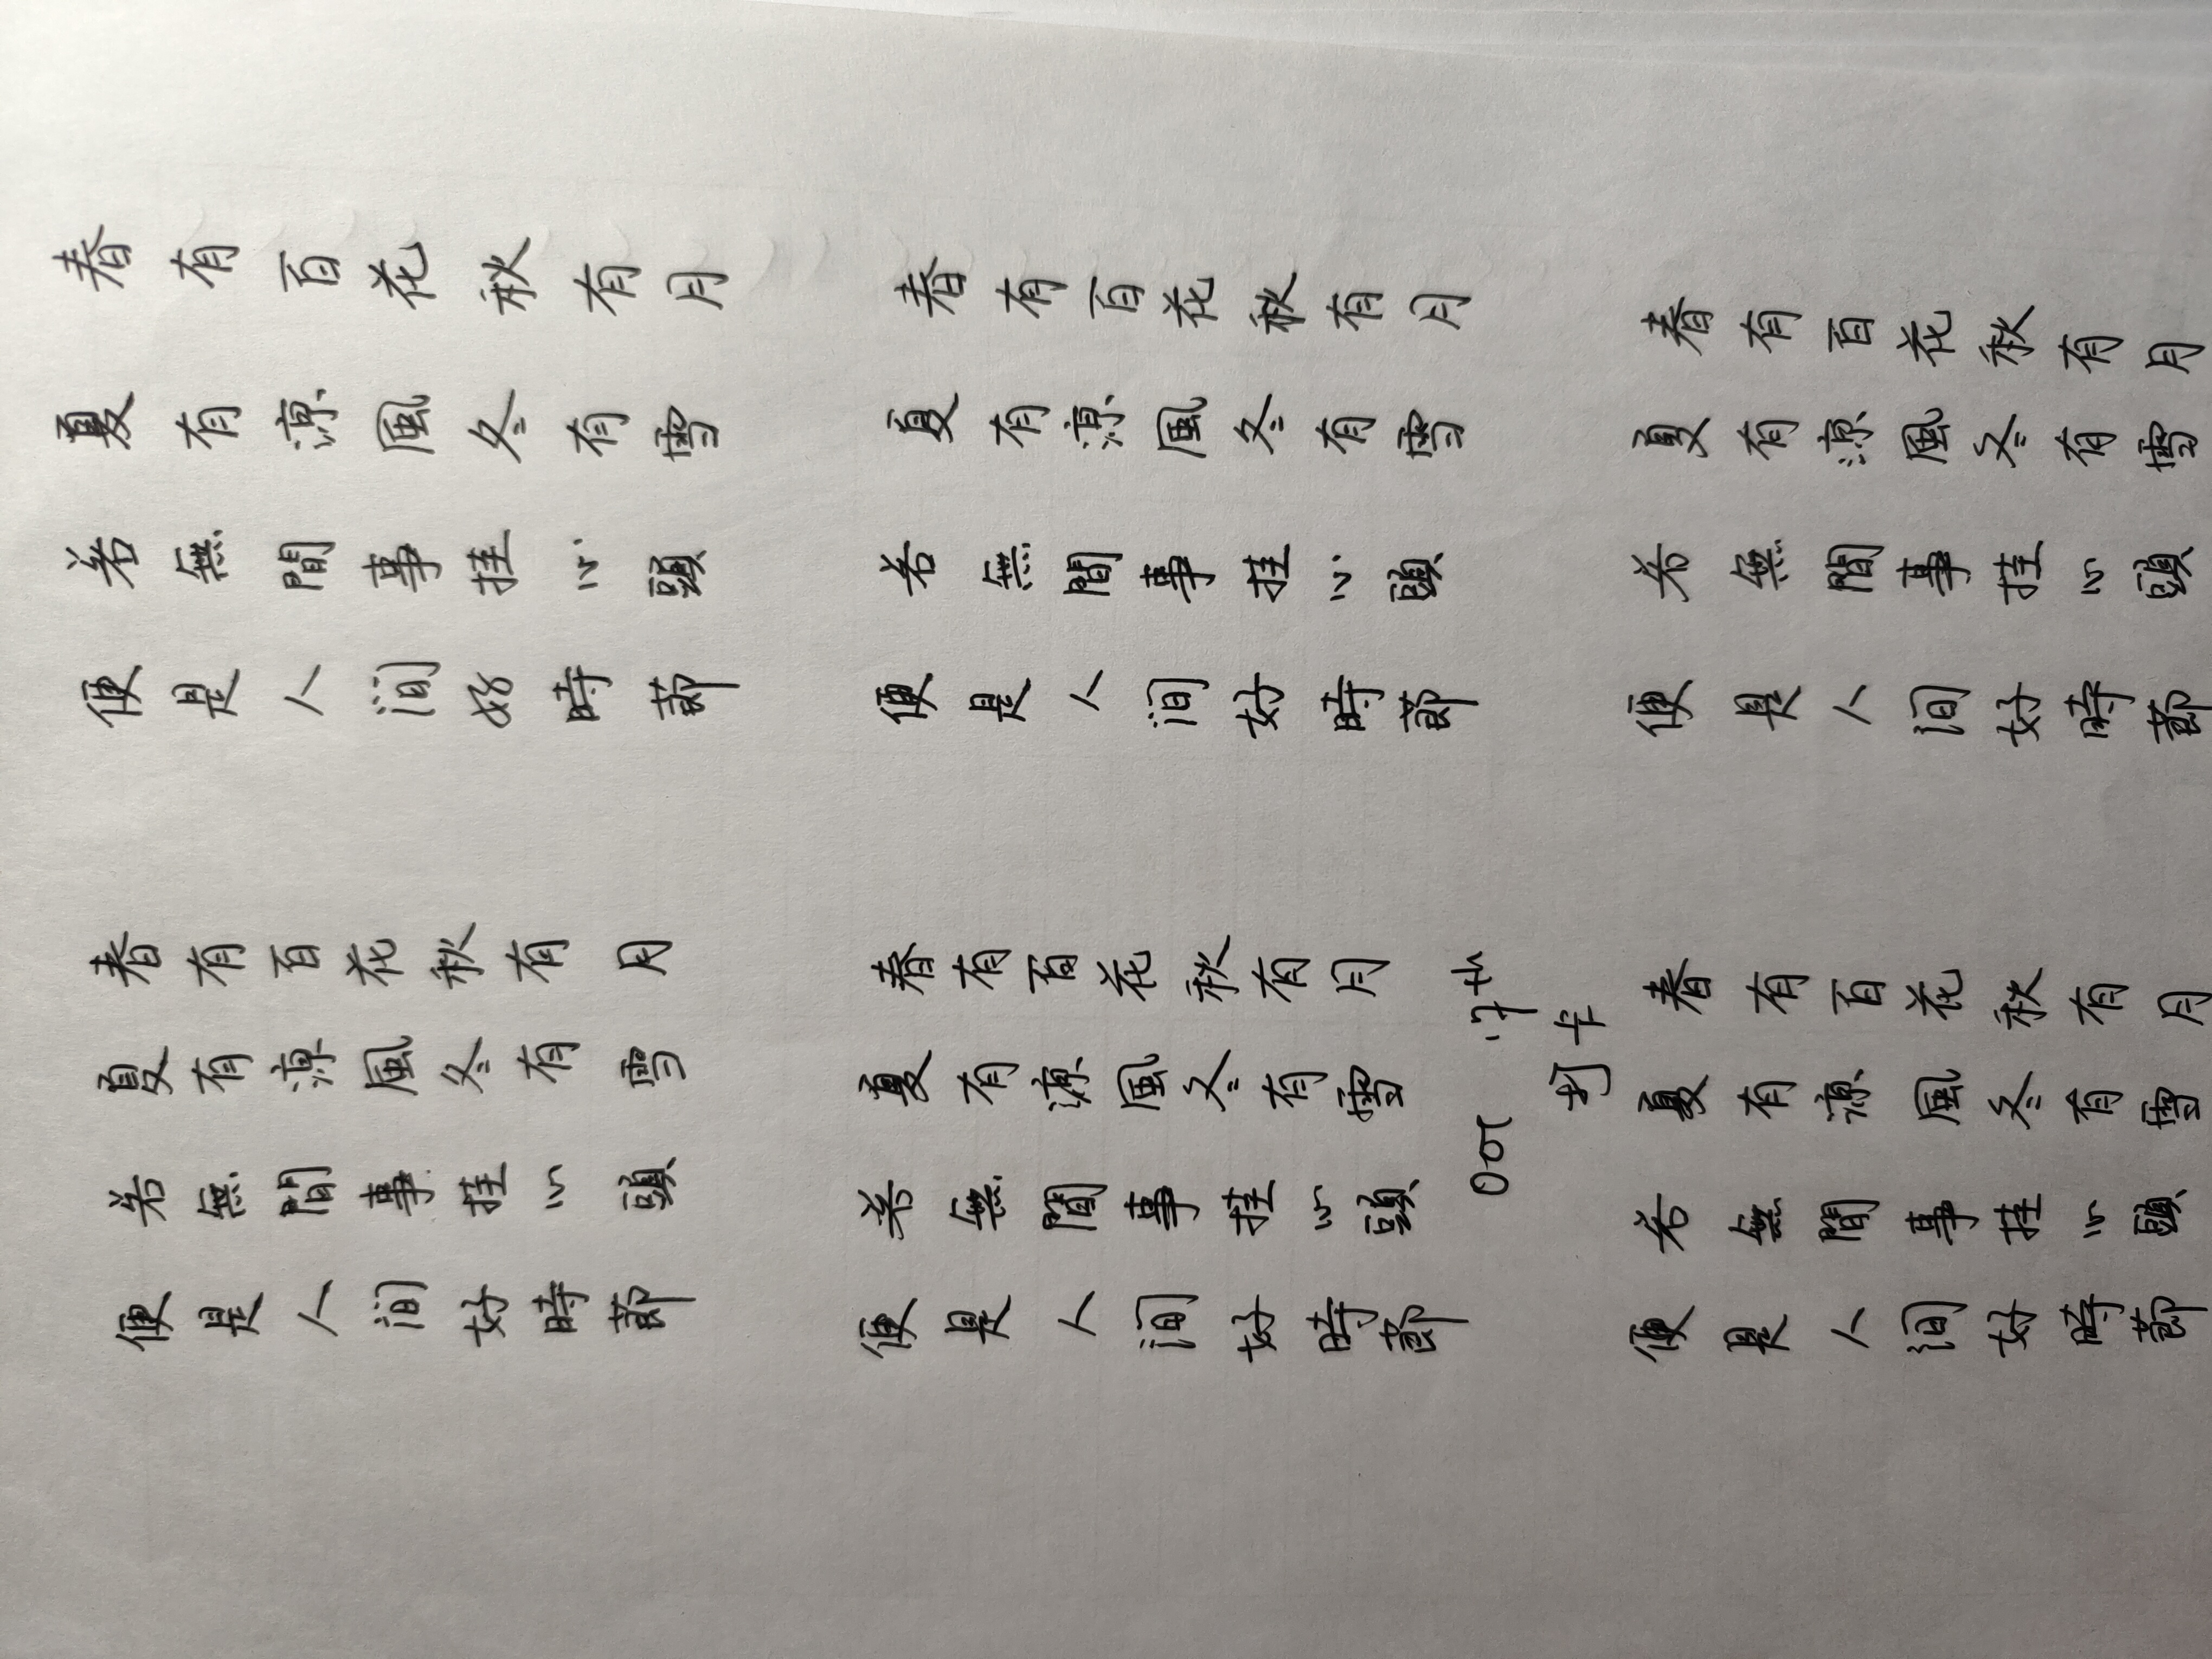 春有百花秋有月
夏有涼風冬有雪
若無間事挂心頭
便是人间好時節
春有百花秋有月
夏有涼風冬有雪
若無間事挂心頭
便是人间好時節
春有百花秋有月
夏有涼風冬有雪
若無間事挂心頭
便是人间好時節
春有百花秋有月
夏有涼風冬有雪
若無間事挂心頭
便是人间好時節
打卡
春有百花秋有月
夏有涼風冬有雪
若無間事挂心頭
便是人间好時節
春有百花秋有月
夏有涼風冬有雪
若無間事挂心頭
便是人间好時節